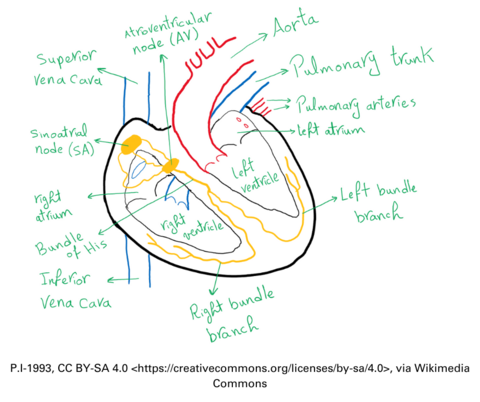 Atroventricular
node (AV)
Aorta
Superior
Vena Cava
Pulmonary trunk
Pulmonary arteries
left atrium
Sinoatral
node (SA)
left
ventricle
right
atrium
right
ventricle
Left bundle
branch
Bundle
of His
Inferior
Vena Cava
Right bundle
branch
P.I-1993, CC BY-SA 4.0 <https://creativecommons.org/licenses/by-sa/4.0>, via Wikimedia
Commons